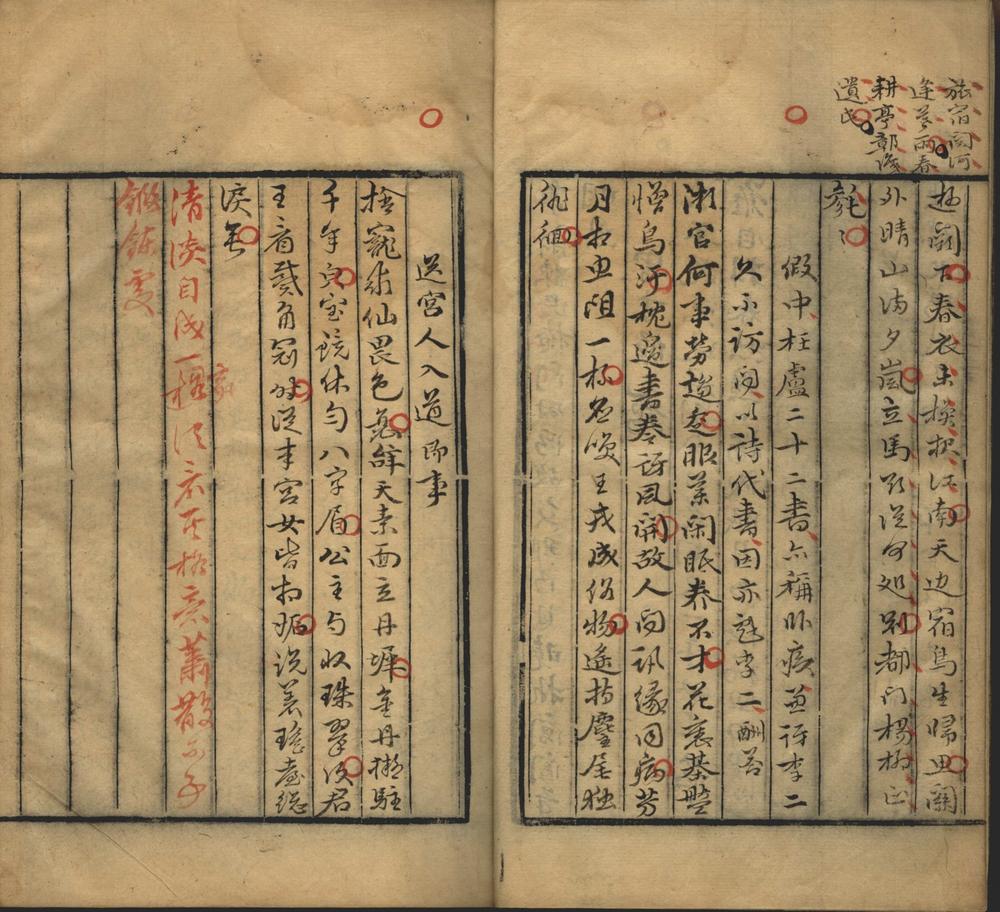 旅宿関河
逢暮雨春
耕亭鄣識
遺民
闕下春衣未換投江南天邊宿鳥生歸思關
外晴山滿夕嵐立馬欲從何処別都門楊柳正
毿〻
假中枉盧二十二書亦稱卧疾兼訝李二
久不訪問以詩代書因亦戲李二酬荅
微官何事勞趨走服藥閑眠養不才花裏棊盤
憎鳥汙枕邊書卷訝風開故人問訊緣同病芳
月相思阻一杯應咲王戎成俗物遙持麈尾獨
徘徊
送宮人入道即事
捨寵求仙畏色衰辭天素面立丹墀金丹擬駐
千年皃宝鏡休勻八字眉公主与收珠翠後君
王看戴角冠時從来宮女皆相妬說着瑤臺總
淚垂
清淡自成一種其格意蕭散不事
鍛鍊處